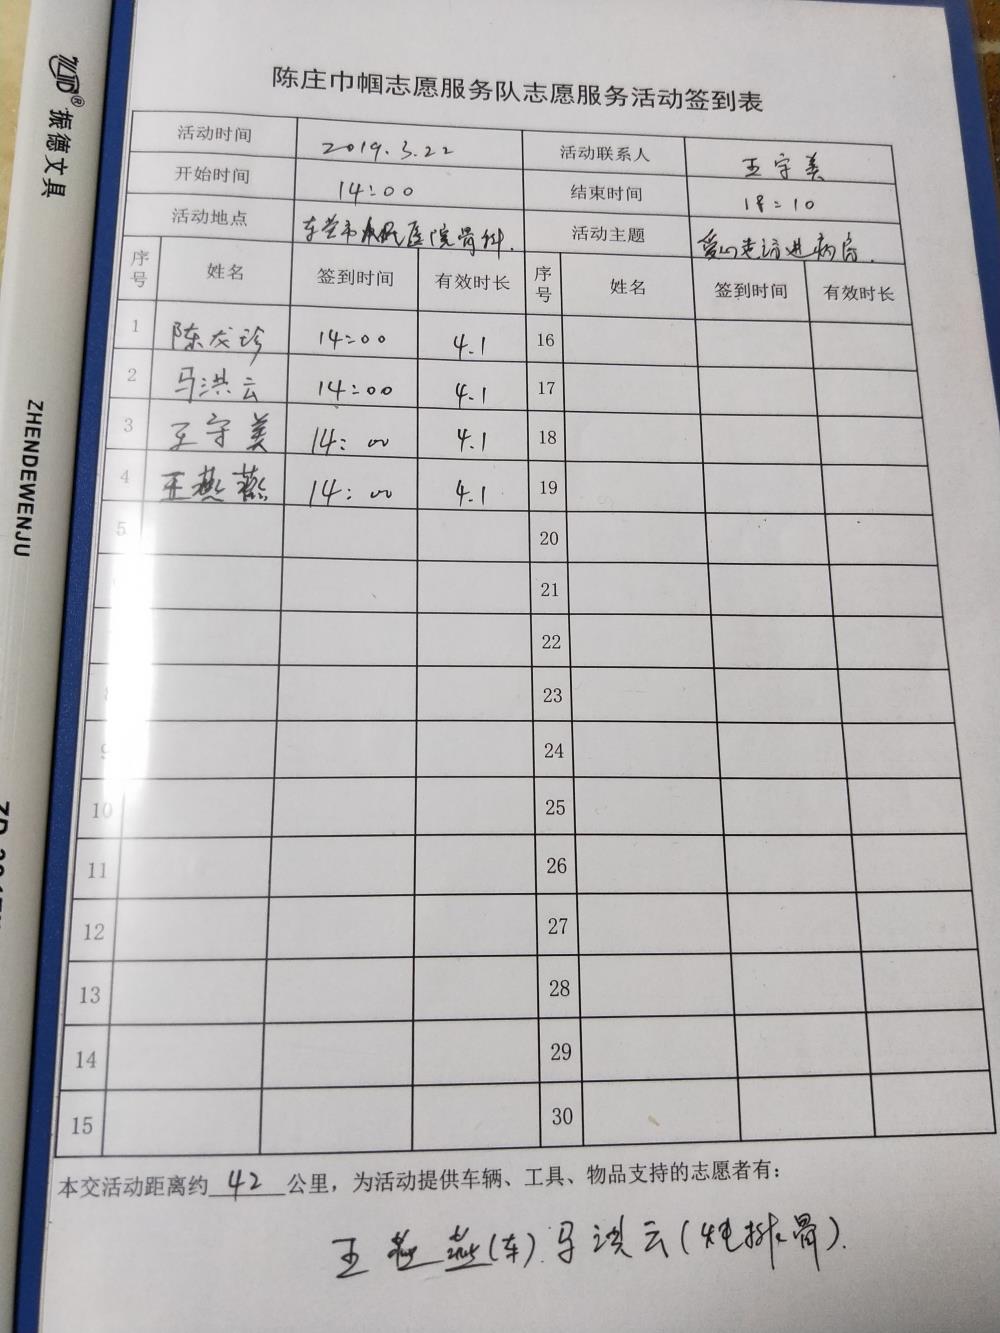 振德文具
ZHENDEWENJU
陈庄巾帼志愿服务队志愿服务活动签到表
活动时间 2019.3.22 活动联系人 王守美
开始时间 14:00 结束时间 18:10
活动地点 东营市人民医院骨科. 活动主题 爱心走访进病房.
序号 姓名 签到时间 有效时长 序号 姓名 签到时间 有效时长
1 陈龙珍 14:00 4.1 16
2 马洪云 14:00 4.1 17
3 王守美 14:00 4.1 18
4 王燕燕 14:00 4.1 19
5 20
21
22
8 23
9 24
10 25
11 26
12 27
13 28
14 29
15 30
本交活动距离约 42 公里，为活动提供车辆、工具、物品支持的志愿者有：
王燕燕(车).马洪云(炖排骨).